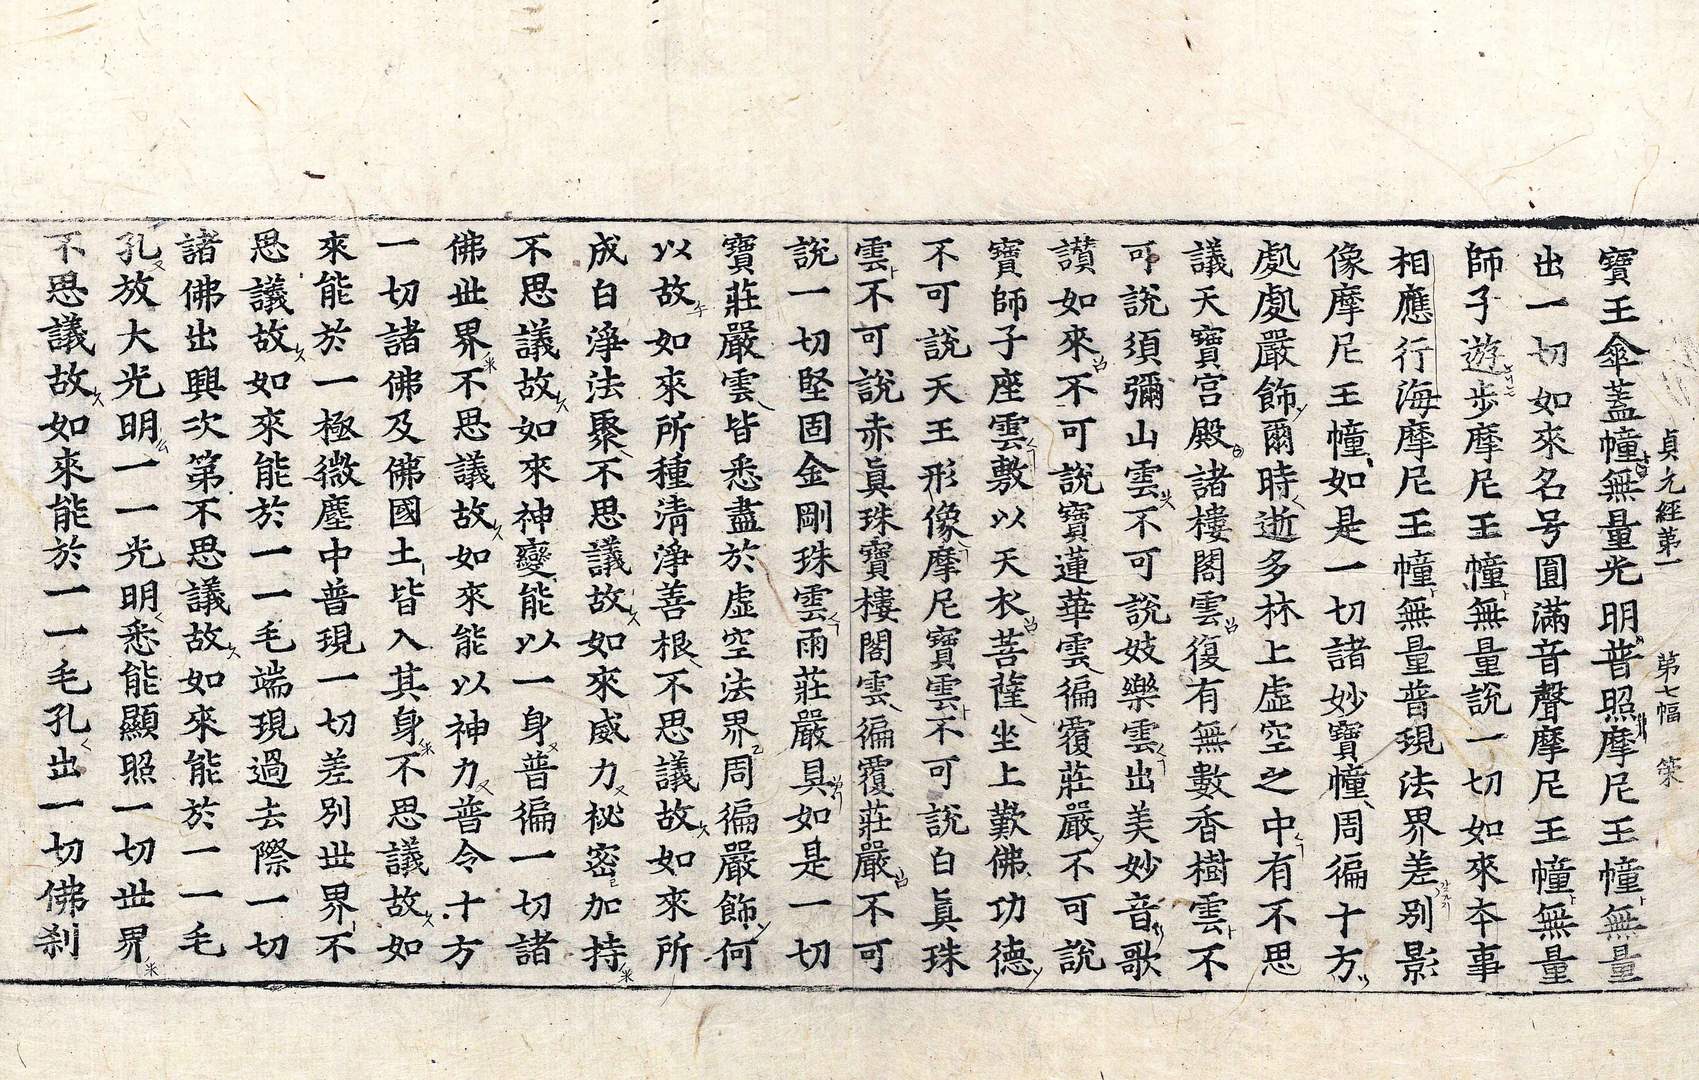 貞元經第一　第七幅　策
寶王傘蓋幢無量光明普照摩尼王幢無量
出一切如來名号圓滿音聲摩尼王幢無量
師子遊步摩尼王幢無量說一切如來本事
相應行海摩尼王幢無量普現法界差別影
像摩尼王幢如是一切諸妙寶幢周徧十方
處處嚴飾爾時逝多林上虛空之中有不思
議天寶宮殿諸樓閣雲復有無數香樹雲不
可說須彌山雲不可說妓樂雲出美妙音歌
讃如來不可說寶蓮華雲徧覆莊嚴不可說
寶師子座雲敷以天衣菩薩坐上歎佛功德
不可說天王形像摩尼寶雲不可說白眞珠
雲不可說赤眞珠寶樓閣雲徧覆莊嚴不可
說一切堅固金剛珠雲雨莊嚴具如是一切
寶莊嚴雲皆悉盡於虛空法界周徧嚴飾何
以故如來所種清淨善根不思議故如來所
成白淨法聚不思議故如來威力祕密加持
不思議故如來神變能以一身普徧一切諸
佛世界不思議故如來能以神力普令十方
一切諸佛及佛國土皆入其身不思議故如
來能於一極微塵中普現一切差別世界不
思議故如來能於一一毛端現過去際一切
諸佛出興次第不思議故如來能於一一毛
孔放大光明一一光明悉能顯照一切世界
不思議故如來能於一一毛孔出一切佛刹